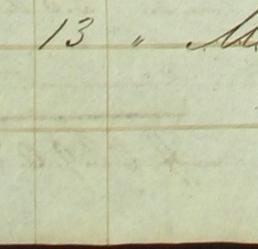 13 "